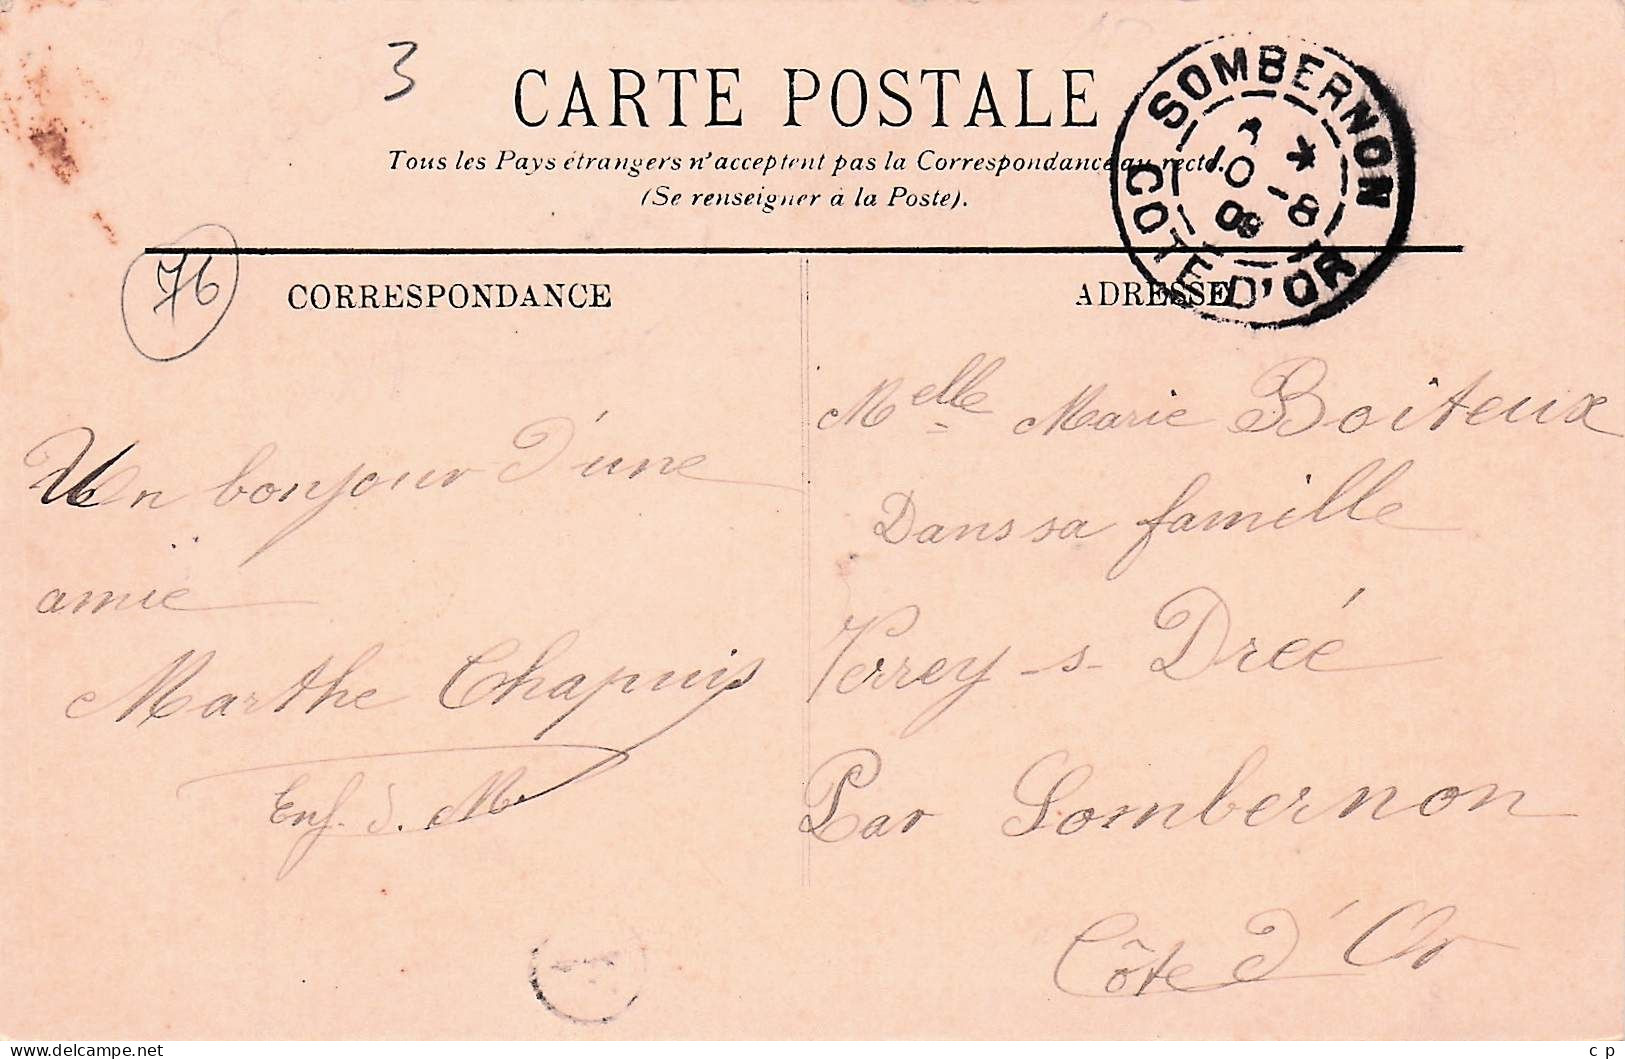 3
CARTE POSTALE
Tous les Pays étrangers n'acceptent pas la Correspondance au recto.
(Se renseigner à la Poste).
SOMBERNON
10 -8
09
COTE D'OR
76
CORRESPONDANCE
ADRESSE
Un bonjour d'une
amie
Marthe Chapuis
Enf. d. M.
Melle Marie Boiteux
Dans sa famille
Verrey-s-Dreé
Par Sombernon
Côte d'Or
c p